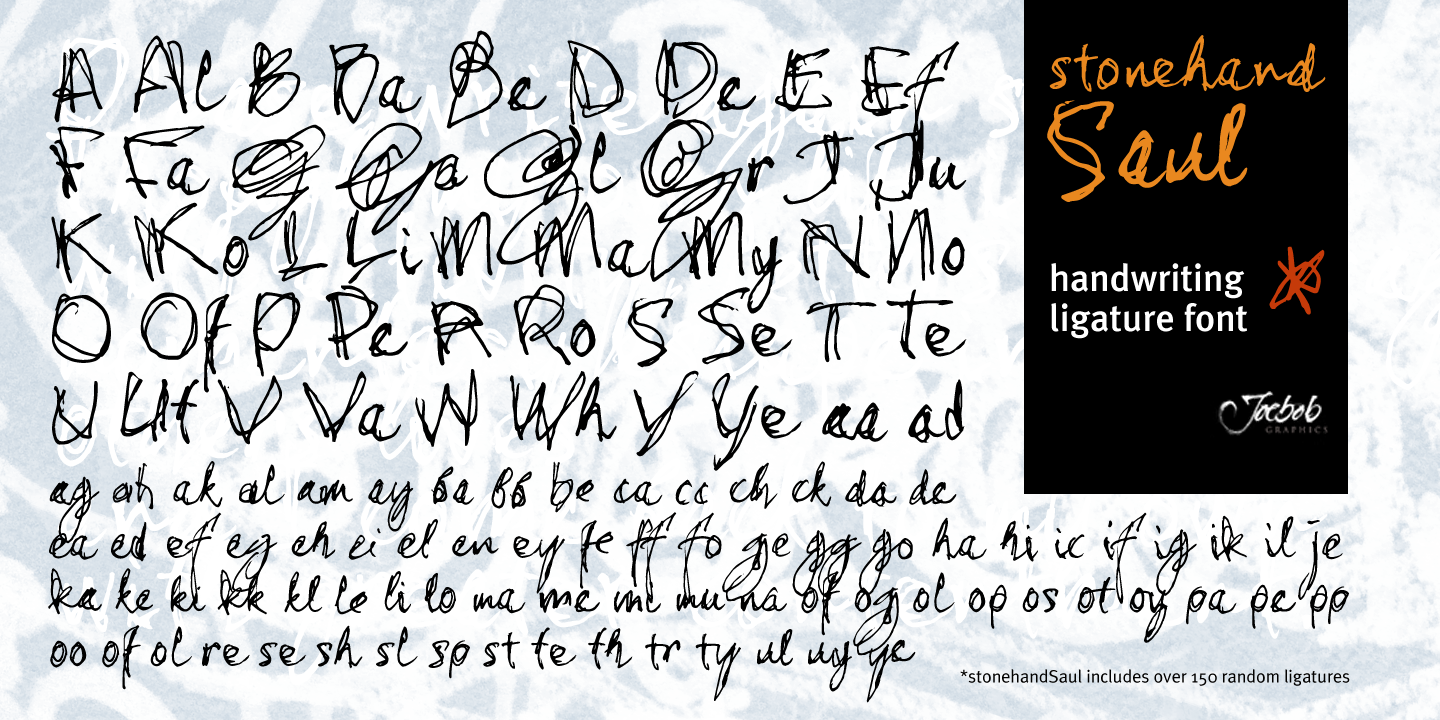 A Al B Ba Be D De E Ef
F Fa G Ga Gl Gr J Ju
K Ko L Li M Ma My N No
O Of P Pe R Ro S Se T Te
U Ut V Va W Wh Y Ye aa ad
ag ah ak al am ay ba bb be ca cc ch ck da de
ea ed ef eg eh ei el en ey fe ff fo ge gg go ha hi ic if ig ik il je
ka ke ki kk kl le li lo ma me mi mu na of og ol op os ot oy pa pe pp
oo of ol re se sh sl sp st te th tr ty ul uy ye
stonehand
Saul
handwriting
ligature font
*
Joebob
GRAPHICS
*stonehandSaul includes over 150 random ligatures